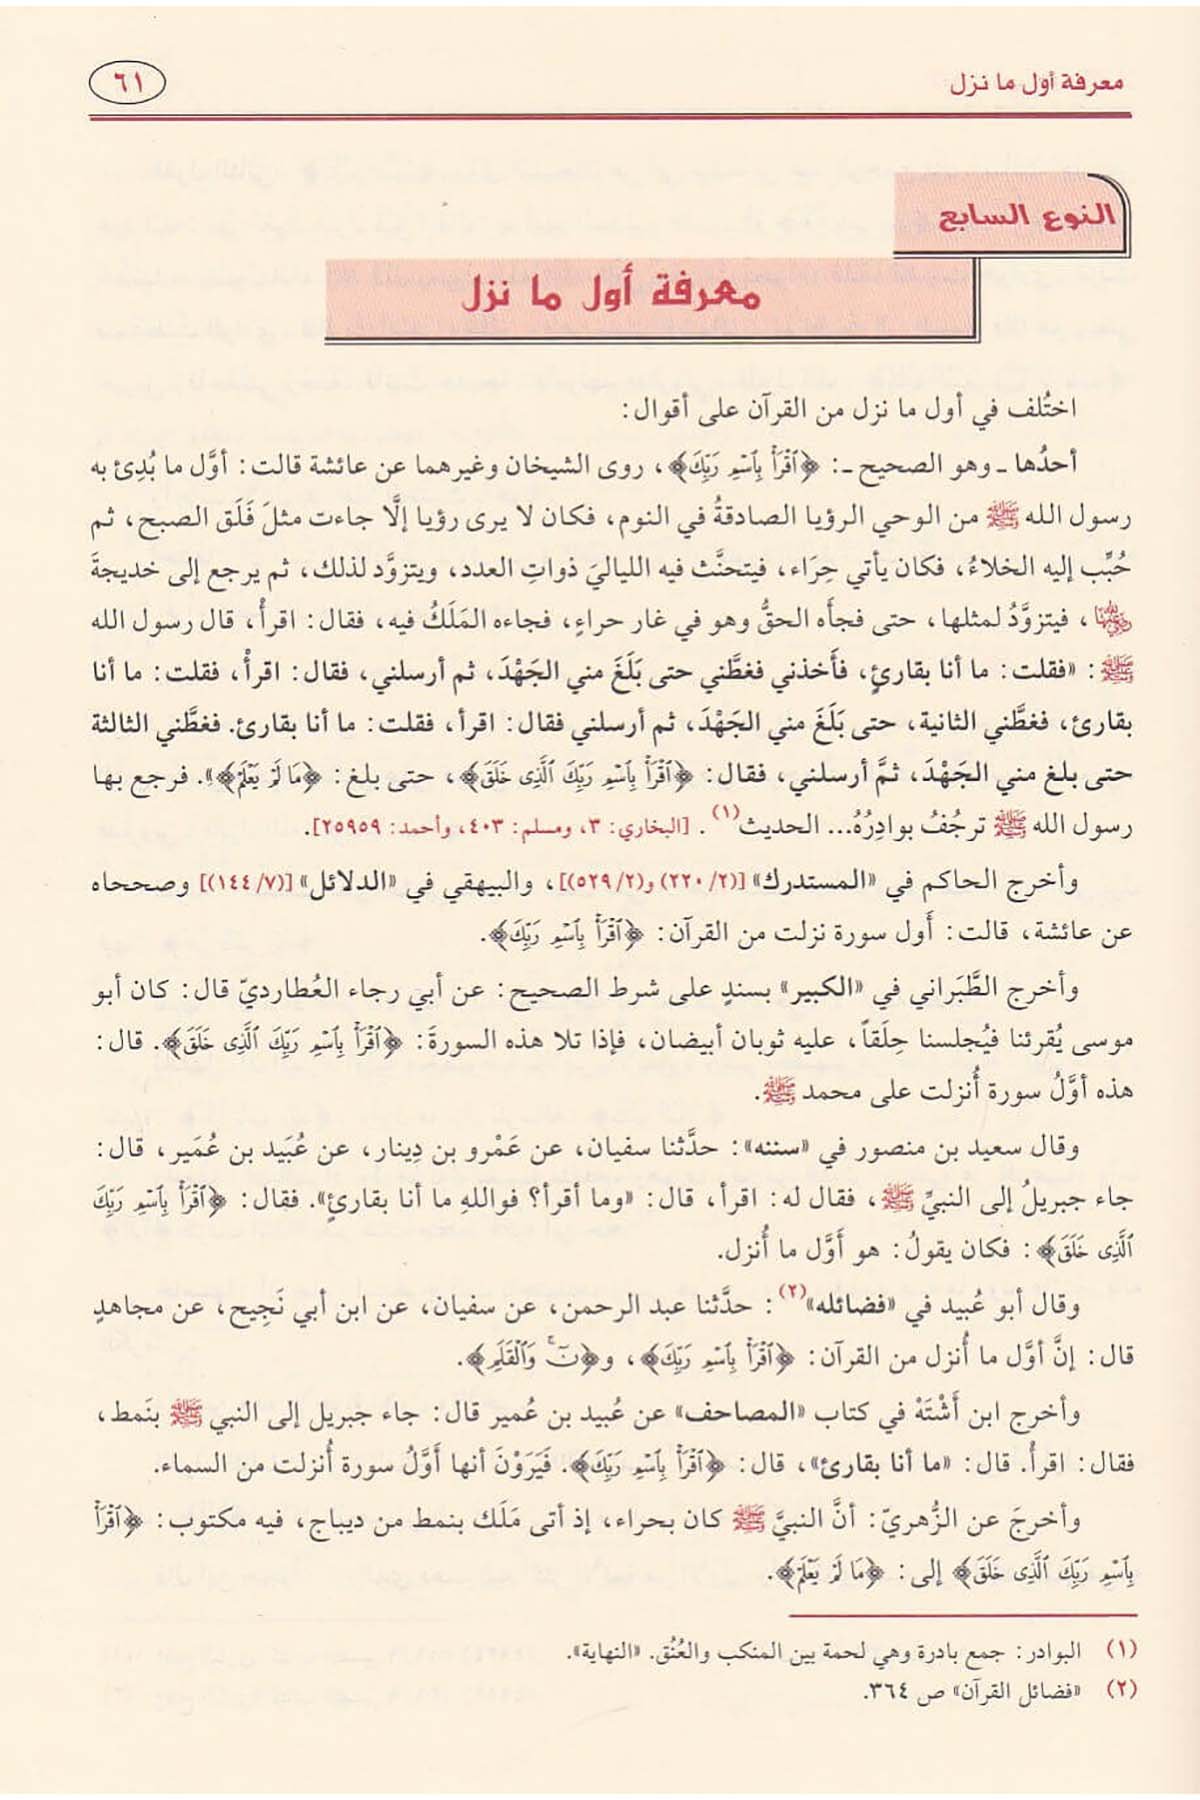 معرفة أول ما نزل
٦١
النوع السابع
معرفة أول ما نزل
اختُلف في أول ما نزل من القرآن على أقوال:
أحدُها ـ وهو الصحيح ـ: ﴿ٱقْرَأْ بِٱسْمِ رَبِّكَ﴾، روى الشيخان وغيرهما عن عائشة قالت: أوَّل ما بُدِئ به
رسول الله ﷺ من الوحي الرؤيا الصادقةُ في النوم، فكان لا يرى رؤيا إلَّا جاءت مثلَ فَلَق الصبح، ثم
حُبِّب إليه الخلاءُ، فكان يأتي حِرَاء، فيتحنَّث فيه اللياليَ ذواتِ العدد، ويتزوَّد لذلك، ثم يرجع إلى خديجةَ
رضي الله عنها، فيتزوَّدُ لمثلها، حتى فجأَه الحقُّ وهو في غار حراءٍ، فجاءه المَلَكُ فيه، فقال: اقرأْ، قال رسول الله
ﷺ: «فقلت: ما أنا بقارئٍ، فأَخذني فغطَّني حتى بَلَغَ مني الجَهْدَ، ثم أرسلني، فقال: اقرأْ، فقلت: ما أنا
بقارئ، فغطَّني الثانية، حتى بَلَغَ مني الجَهْدَ، ثم أرسلني فقال: اقرأ، فقلت: ما أنا بقارئ. فغطَّني الثالثة
حتى بلغ مني الجَهْدَ، ثمَّ أرسلني، فقال: ﴿ٱقْرَأْ بِٱسْمِ رَبِّكَ ٱلَّذِى خَلَقَ﴾، حتى بلغ: ﴿مَا لَمْ يَعْلَمْ﴾». فرجع بها
رسول الله ﷺ ترجُفُ بوادِرُهُ... الحديث(١). [البخاري: ٣، ومسلم: ٤٠٣، وأحمد: ٢٥٩٥٩].
وأخرج الحاكم في «المستدرك» [(٢/ ٢٢٠) و(٢/ ٥٢٩)]، والبيهقي في «الدلائل» [(٧/ ١٤٤)] وصححاه
عن عائشة، قالت: أَول سورة نزلت من القرآن: ﴿ٱقْرَأْ بِٱسْمِ رَبِّكَ﴾.
وأخرج الطَّبَراني في «الكبير» بسندٍ على شرط الصحيح: عن أبي رجاء العُطارديّ قال: كان أبو
موسى يُقرئنا فيُجلسنا حِلَقاً، عليه ثوبان أبيضان، فإذا تلا هذه السورةَ: ﴿ٱقْرَأْ بِٱسْمِ رَبِّكَ ٱلَّذِى خَلَقَ﴾. قال:
هذه أوَّلُ سورة أُنزلت على محمد ﷺ.
وقال سعيد بن منصور في «سننه»: حدَّثنا سفيان، عن عَمْرو بن دِينار، عن عُبَيد بن عُمَير، قال:
جاء جبريلُ إلى النبيِّ ﷺ، فقال له: اقرأ، قال: «وما أقرأ؟ فواللهِ ما أنا بقارئٍ». فقال: ﴿ٱقْرَأْ بِٱسْمِ رَبِّكَ
ٱلَّذِى خَلَقَ﴾: فكان يقولُ: هو أوَّل ما أُنزل.
وقال أبو عُبيد في «فضائله»(٢): حدَّثنا عبد الرحمن، عن سفيان، عن ابن أبي نَجِيح، عن مجاهدٍ
قال: إنَّ أوَّل ما أُنزل من القرآن: ﴿ٱقْرَأْ بِٱسْمِ رَبِّكَ﴾، و﴿نٓ ۚ وَٱلْقَلَمِ﴾.
وأخرج ابن أَشْتَهْ في كتاب «المصاحف» عن عُبيد بن عُمير قال: جاء جبريل إلى النبي ﷺ بنَمط،
فقال: اقرأْ. قال: «ما أنا بقارئ»، قال: ﴿ٱقْرَأْ بِٱسْمِ رَبِّكَ﴾. فَيَرَوْنَ أنها أوَّلُ سورة أُنزلت من السماء.
وأخرجَ عن الزُّهريّ: أنَّ النبيَّ ﷺ كان بحراء، إذ أتى مَلَك بنمط من ديباج، فيه مكتوب: ﴿ٱقْرَأْ
بِٱسْمِ رَبِّكَ ٱلَّذِى خَلَقَ﴾ إلى: ﴿مَا لَمْ يَعْلَمْ﴾.
(١) البوادر: جمع بادرة وهي لحمة بين المنكب والعُنُق. «النهاية».
(٢) «فضائل القرآن» ص ٣٦٤.